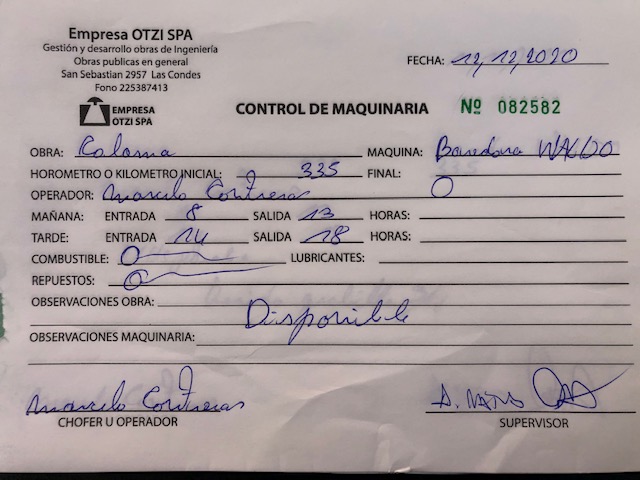 Empresa OTZI SPA
Gestión y desarrollo obras de Ingeniería
Obras publicas en general
San Sebastian 2957 Las Condes
Fono 225387413
FECHA: 12/12/2020
EMPRESA
OTZI SPA
CONTROL DE MAQUINARIA Nº 082582
OBRA: Calama MAQUINA: Barredora WALDO
HOROMETRO O KILOMETRO INICIAL: 335 FINAL: 0
OPERADOR: Contreras
MAÑANA: ENTRADA 8 SALIDA 13 HORAS:
TARDE: ENTRADA 14 SALIDA 18 HORAS:
COMBUSTIBLE: 0 LUBRICANTES:
REPUESTOS: 0
OBSERVACIONES OBRA:
Disponible
OBSERVACIONES MAQUINARIA:
Contreras
CHOFER U OPERADOR
SUPERVISOR